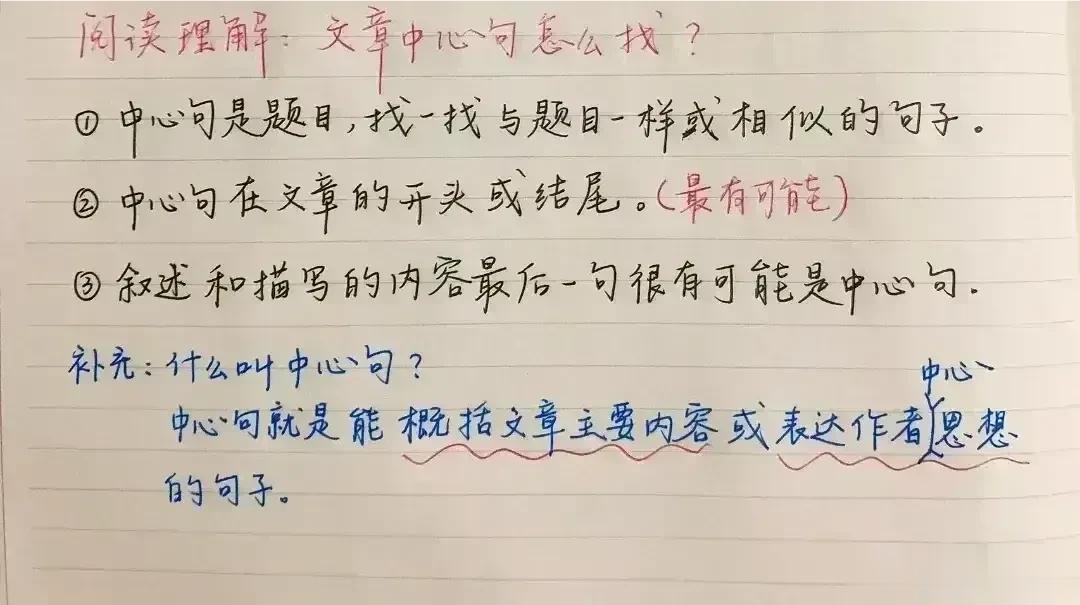 阅读理解：文章中心句怎么找？
①中心句是题目，找一找与题目一样或相似的句子。
②中心句在文章的开头或结尾。（最有可能）
③叙述和描写的内容最后一句很有可能是中心句.
补充：什么叫中心句？
中心句就是能概括文章主要内容或表达作者中心思想
的句子。